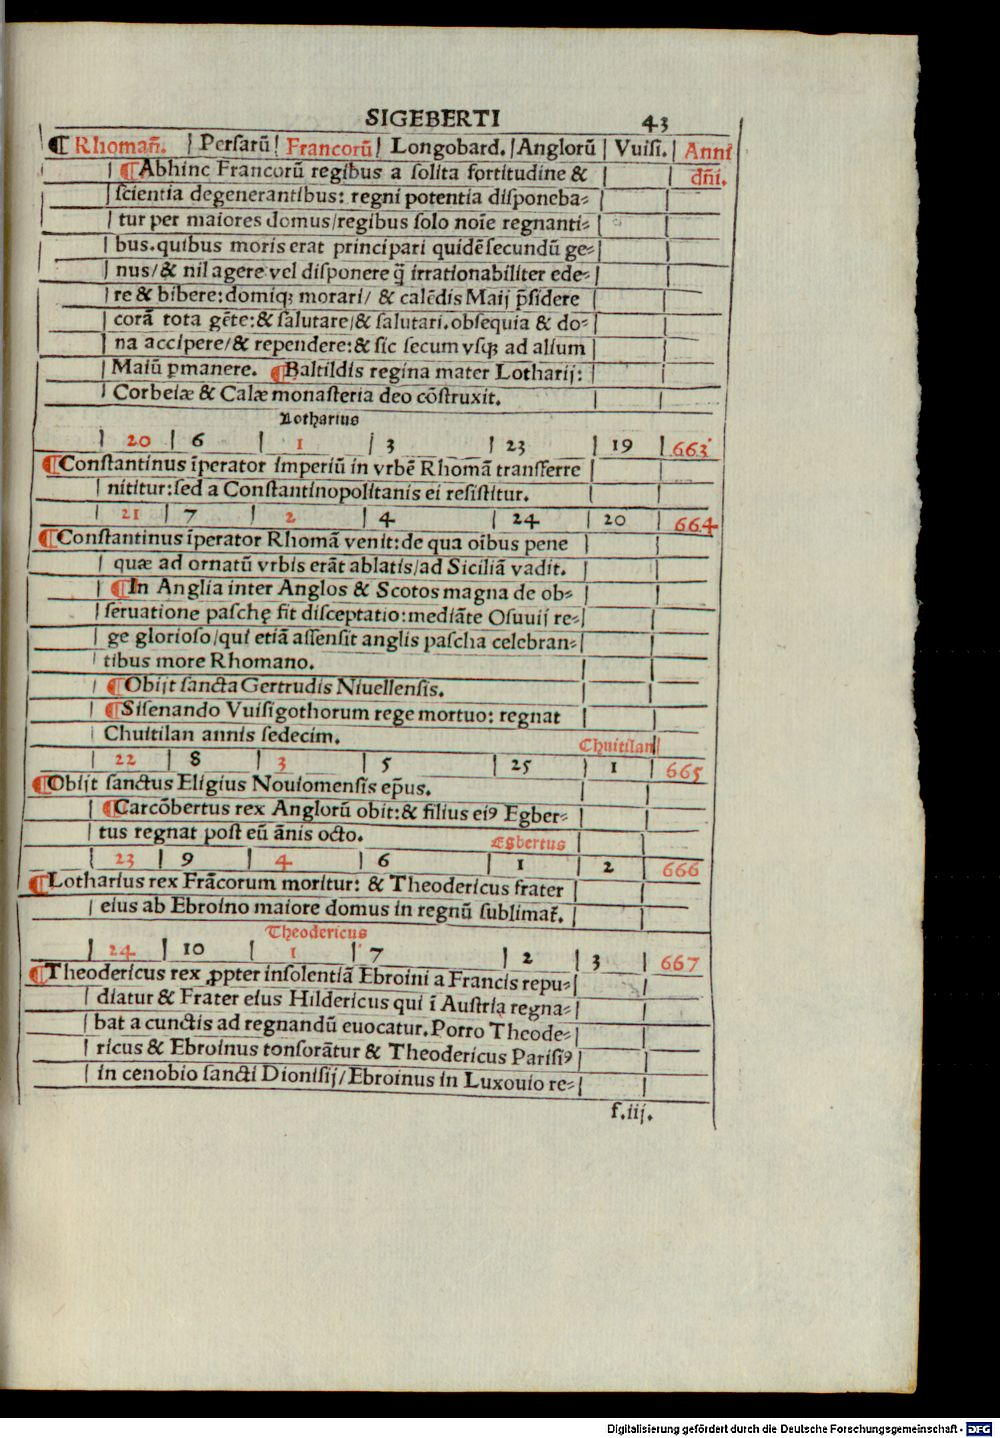 SIGEBERTI 43
¶ Rhomañ. | Persarũ | Francorũ | Longobard. | Anglorũ | Vuisi. | Anni
dñi.
¶Abhinc Francorũ regibus a solita fortitudine &
scientia degenerantibus: regni potentia disponeba⸗
tur per maiores domus/regibus solo noīe regnanti⸗
bus.quibus moris erat principari quidē secundũ ge⸗
nus/& nil agere vel disponere q̄ irrationabiliter ede⸗
re & bibere:domiqꝫ morari/ & calēdis Maij p̄sidere
corā tota gēte:& salutare/& salutari.obsequia & do⸗
na accipere/& rependere:& sic secum vsqꝫ ad alium
Maiũ ꝑmanere. ¶Baltildis regina mater Lotharij:
Corbeiæ & Calæ monasteria deo cõstruxit.
Lotharius
20 | 6 | 1 | 3 | 23 | 19 | 663
¶Constantinus īperator imperiũ in vrbē Rhomā transferre
nititur:sed a Constantinopolitanis ei resistitur.
21 | 7 | 2 | 4 | 24 | 20 | 664
¶Constantinus īperator Rhomā venit:de qua oībus pene
quæ ad ornatũ vrbis erāt ablatis/ad Siciliā vadit.
¶In Anglia inter Anglos & Scotos magna de ob⸗
seruatione paschę fit disceptatio:mediāte Osuuij re⸗
ge glorioso/qui etiā assensit anglis pascha celebran⸗
tibus more Rhomano.
¶Obijt sancta Gertrudis Niuellensis.
¶Sisenando Vuisigothorum rege mortuo: regnat
Chuitilan annis sedecim.
Chuitilan
22 | 8 | 3 | 5 | 25 | 1 | 665
¶Obijt sanctus Eligius Nouiomensis ep̄us.
¶Carcōbertus rex Anglorũ obit:& filius eiꝰ Egber⸗
tus regnat post eũ ānis octo.
Egbertus
23 | 9 | 4 | 6 | 1 | 2 | 666
¶Lotharius rex Frācorum moritur: & Theodericus frater
eius ab Ebroino maiore domus in regnũ sublimat᷑.
Theodericus
24 | 10 | 1 | 7 | 2 | 3 | 667
¶Theodericus rex ꝓpter insolentiā Ebroini a Francis repu⸗
diatur & Frater eius Hildericus qui ī Austria regna⸗
bat a cunctis ad regnandũ euocatur.Porro Theode⸗
ricus & Ebroinus tonsorātur & Theodericus Parisiꝰ
in cenobio sancti Dionisij/Ebroinus in Luxouio re⸗
f.iij.
Digitalisierung gefördert durch die Deutsche Forschungsgemeinschaft - DFG